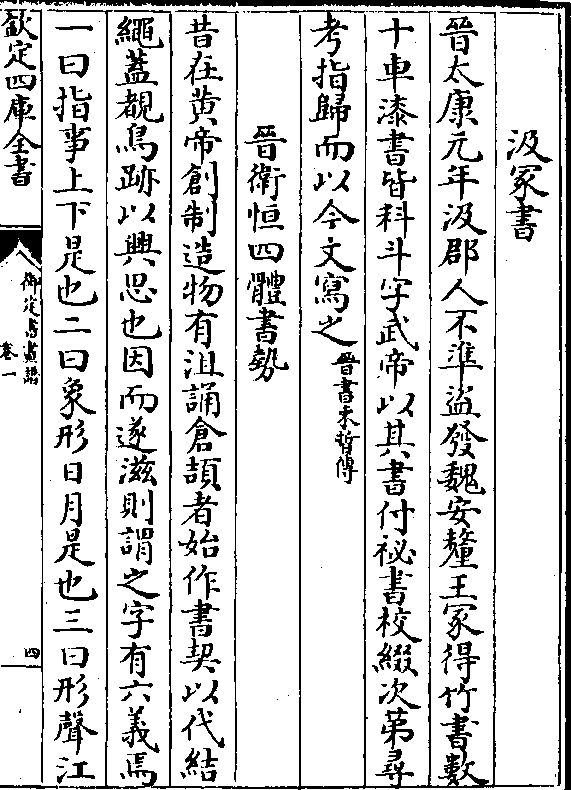 汲冢書
晉太康元年汲郡人不準盜發魏安釐王冢得竹書數
十車漆書皆科斗字武帝以其書付祕書校綴次第尋
考指歸而以今文寫之晉書束晳傳
晉衛恒四體書勢
昔在黄帝創制造物有沮誦倉頡者始作書契以代結
繩蓋覩鳥跡以興思也因而遂滋則謂之字有六義焉
一曰指事上下是也二曰象形日月是也三曰形聲江
欽定四庫全書
御定書畫譜
卷一
四